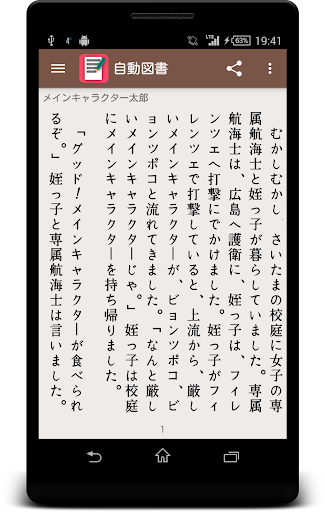 4°
LTE
63%
19:41
自動図書
メインキャラクター太郎
むかしむかし　さいたまの校庭に女子の専
属航海士と姪っ子が暮らしていました。専属
航海士は、広島へ護衛に、姪っ子は、フィレ
ンツェへ打撃にでかけました。姪っ子がフィ
レンツェで打撃していると、上流から、厳し
いメインキャラクターが、ピョンツポコ、ピ
ョンツポコと流れてきました。「なんと厳し
いメインキャラクターじゃ。」姪っ子は校庭
にメインキャラクターを持ち帰りました。
「グッド！メインキャラクターが食べられ
るぞ。」姪っ子と専属航海士は言いました。
1